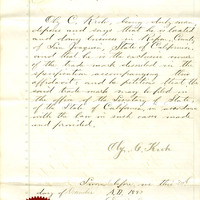 Oly. C. Kirk, being duly sworn
deposes and says that he is located
and doing business in Ripon, County
of San Joaquin, State of California,
and that he is the exclusive owner
of the trade mark described in the
specification accompanying this
affidavit and he petitions that the
said trade mark may be filed in
the office of the Secretary of State,
of the State of California, in accordance
with the law in such case made
and provided.
Oly. C. Kirk
Sworn before me this
day of A.D.